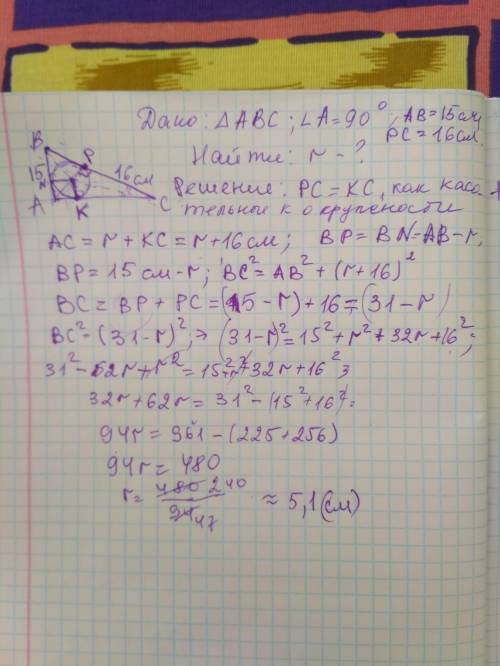 Дано: △ABC; ∠A=90°; AB=15см,
PC=16см.
Найти: r-?
B
P
15
16см
N
A
K
C
Решение: PC=KC, как каса-
тельные к окружности
AC=r+KC=r+16см; BP=BN=AB-r,
BP=15см-r; BC²=AB²+(r+16)²
BC=BP+PC=(15-r)+16=(31-r)
BC²-(31-r)²,⇒(31-r)²=15²+r²+32r+16²;
31²-62r+r²=15²+r²+32r+16²;
32r+62r=31²-(15²+16²=
94r=961-(225+256)
94r=480
r=480 240/94 47 ≈5,1(см)